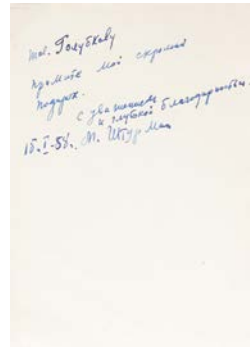 тов. Голубкову
примите мой скромный
подарок.
с уважением
и глубокой благодарностью.
15.I-58. М. Штурман